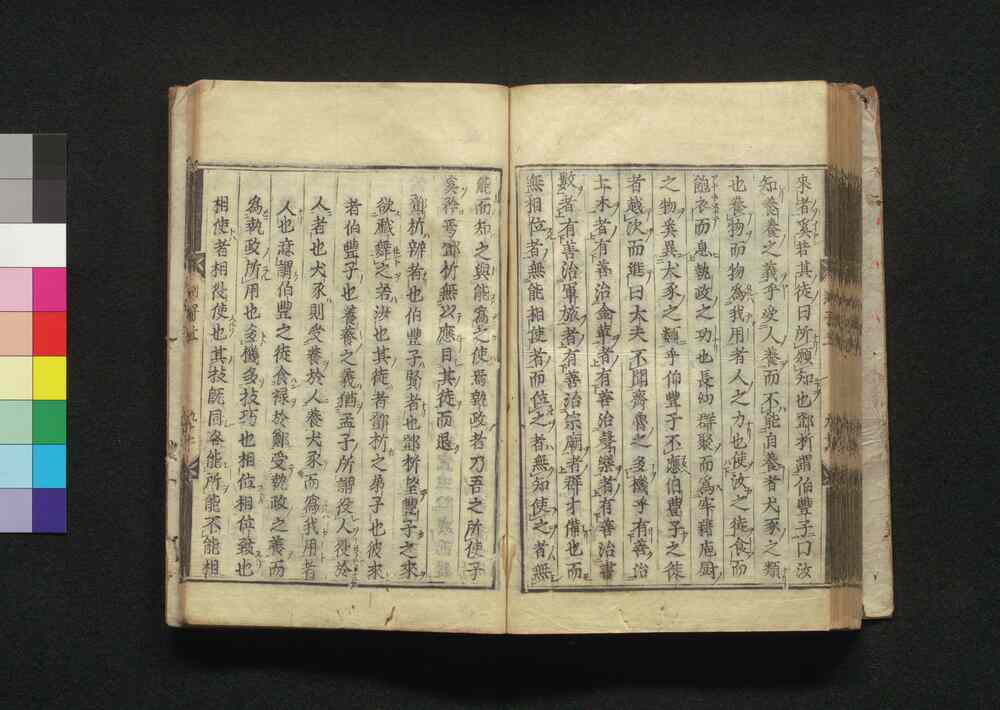 來者奚若其徒曰所願知也鄧析謂伯豐子曰汝
知養養之義乎受人養而不能自養者犬豕之類
也養物而物為我用者人之力也使汝之徒食而
飽衣而息執政之功也長幼群聚而為牢藉庖厨
之物奚異犬豕之類乎伯豐子不應伯豐子之徒
者越次而進曰大夫不聞齊魯之多機乎有善治
土木者有善治金革者有善治聲樂者有善治書
數者有善治軍旅者有善治宗廟者群才備也而
無相位者無能相使者而位之者無知使之者無
能而知之與能為之使焉執政者乃吾之所使子
奚矜焉鄧析無以應目其徒而退
鄧析辨者也伯豐子賢者也鄧析望豐子之來
欲戲舞之若汝也其徒者鄧析之弟子也彼來
者伯豐子也養養之義猶孟子所謂役人役於
人者也犬豕則受養於人養犬豕而為我用者
人也意謂伯豐之徒食祿於鄭受執政之養而
為執政所用也多機多技巧也相位相位致也
相使者相役使也其技既同容能所能不能相